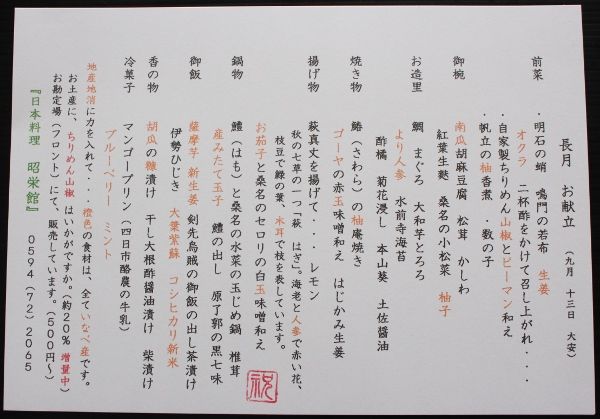 長月 お献立 (九月 十三日 大安)
前菜 ・明石の蛸 鳴門の若布 生姜
オクラ 二杯酢をかけて召し上がれ・・・
・自家製ちりめん山椒とピーマン和え
・帆立の柚香煮 ・数の子
御椀 南瓜胡麻豆腐 松茸 かしわ
紅葉生麩 桑名の小松菜 柚子
お造里 鯛 まぐろ 大和芋とろろ
より人参 水前寺海苔
酢橘 菊花浸し 本山葵 土佐醤油
焼き物 鰆(さわら)の柚庵焼き
ゴーヤの赤玉味噌和え はじかみ生姜
揚げ物 萩真丈を揚げて・・・レモン
秋の七草の一つ「萩 はぎ」。海老と人参で赤い花、
枝豆で緑の葉、木耳で枝を表しています。
お茄子と桑名のセロリの白玉味噌和え
鍋物 鱧(はも)と桑名の水菜の玉じめ鍋 椎茸
産みたて玉子 鱧の出し 原了郭の黒七味
御飯 薩摩芋 新生姜 剣先烏賊の御飯の出し茶漬け
伊勢ひじき 大葉紫蘇 コシヒカリ新米
香の物 胡瓜の糠漬け 干し大根酢醤油漬け 柴漬け
冷菓子 マンゴープリン(四日市酪農の牛乳)
ブルーベリー ミント
地産地消に力を入れて・・・橙色の食材は、全ていなべ産です。
お土産に、ちりめん山椒 はいかがですか。(約20% 増量中)
お勘定場(フロント)にて、販売しています。(500円〜)
『日本料理 昭栄館』 0594(72)2065
祝